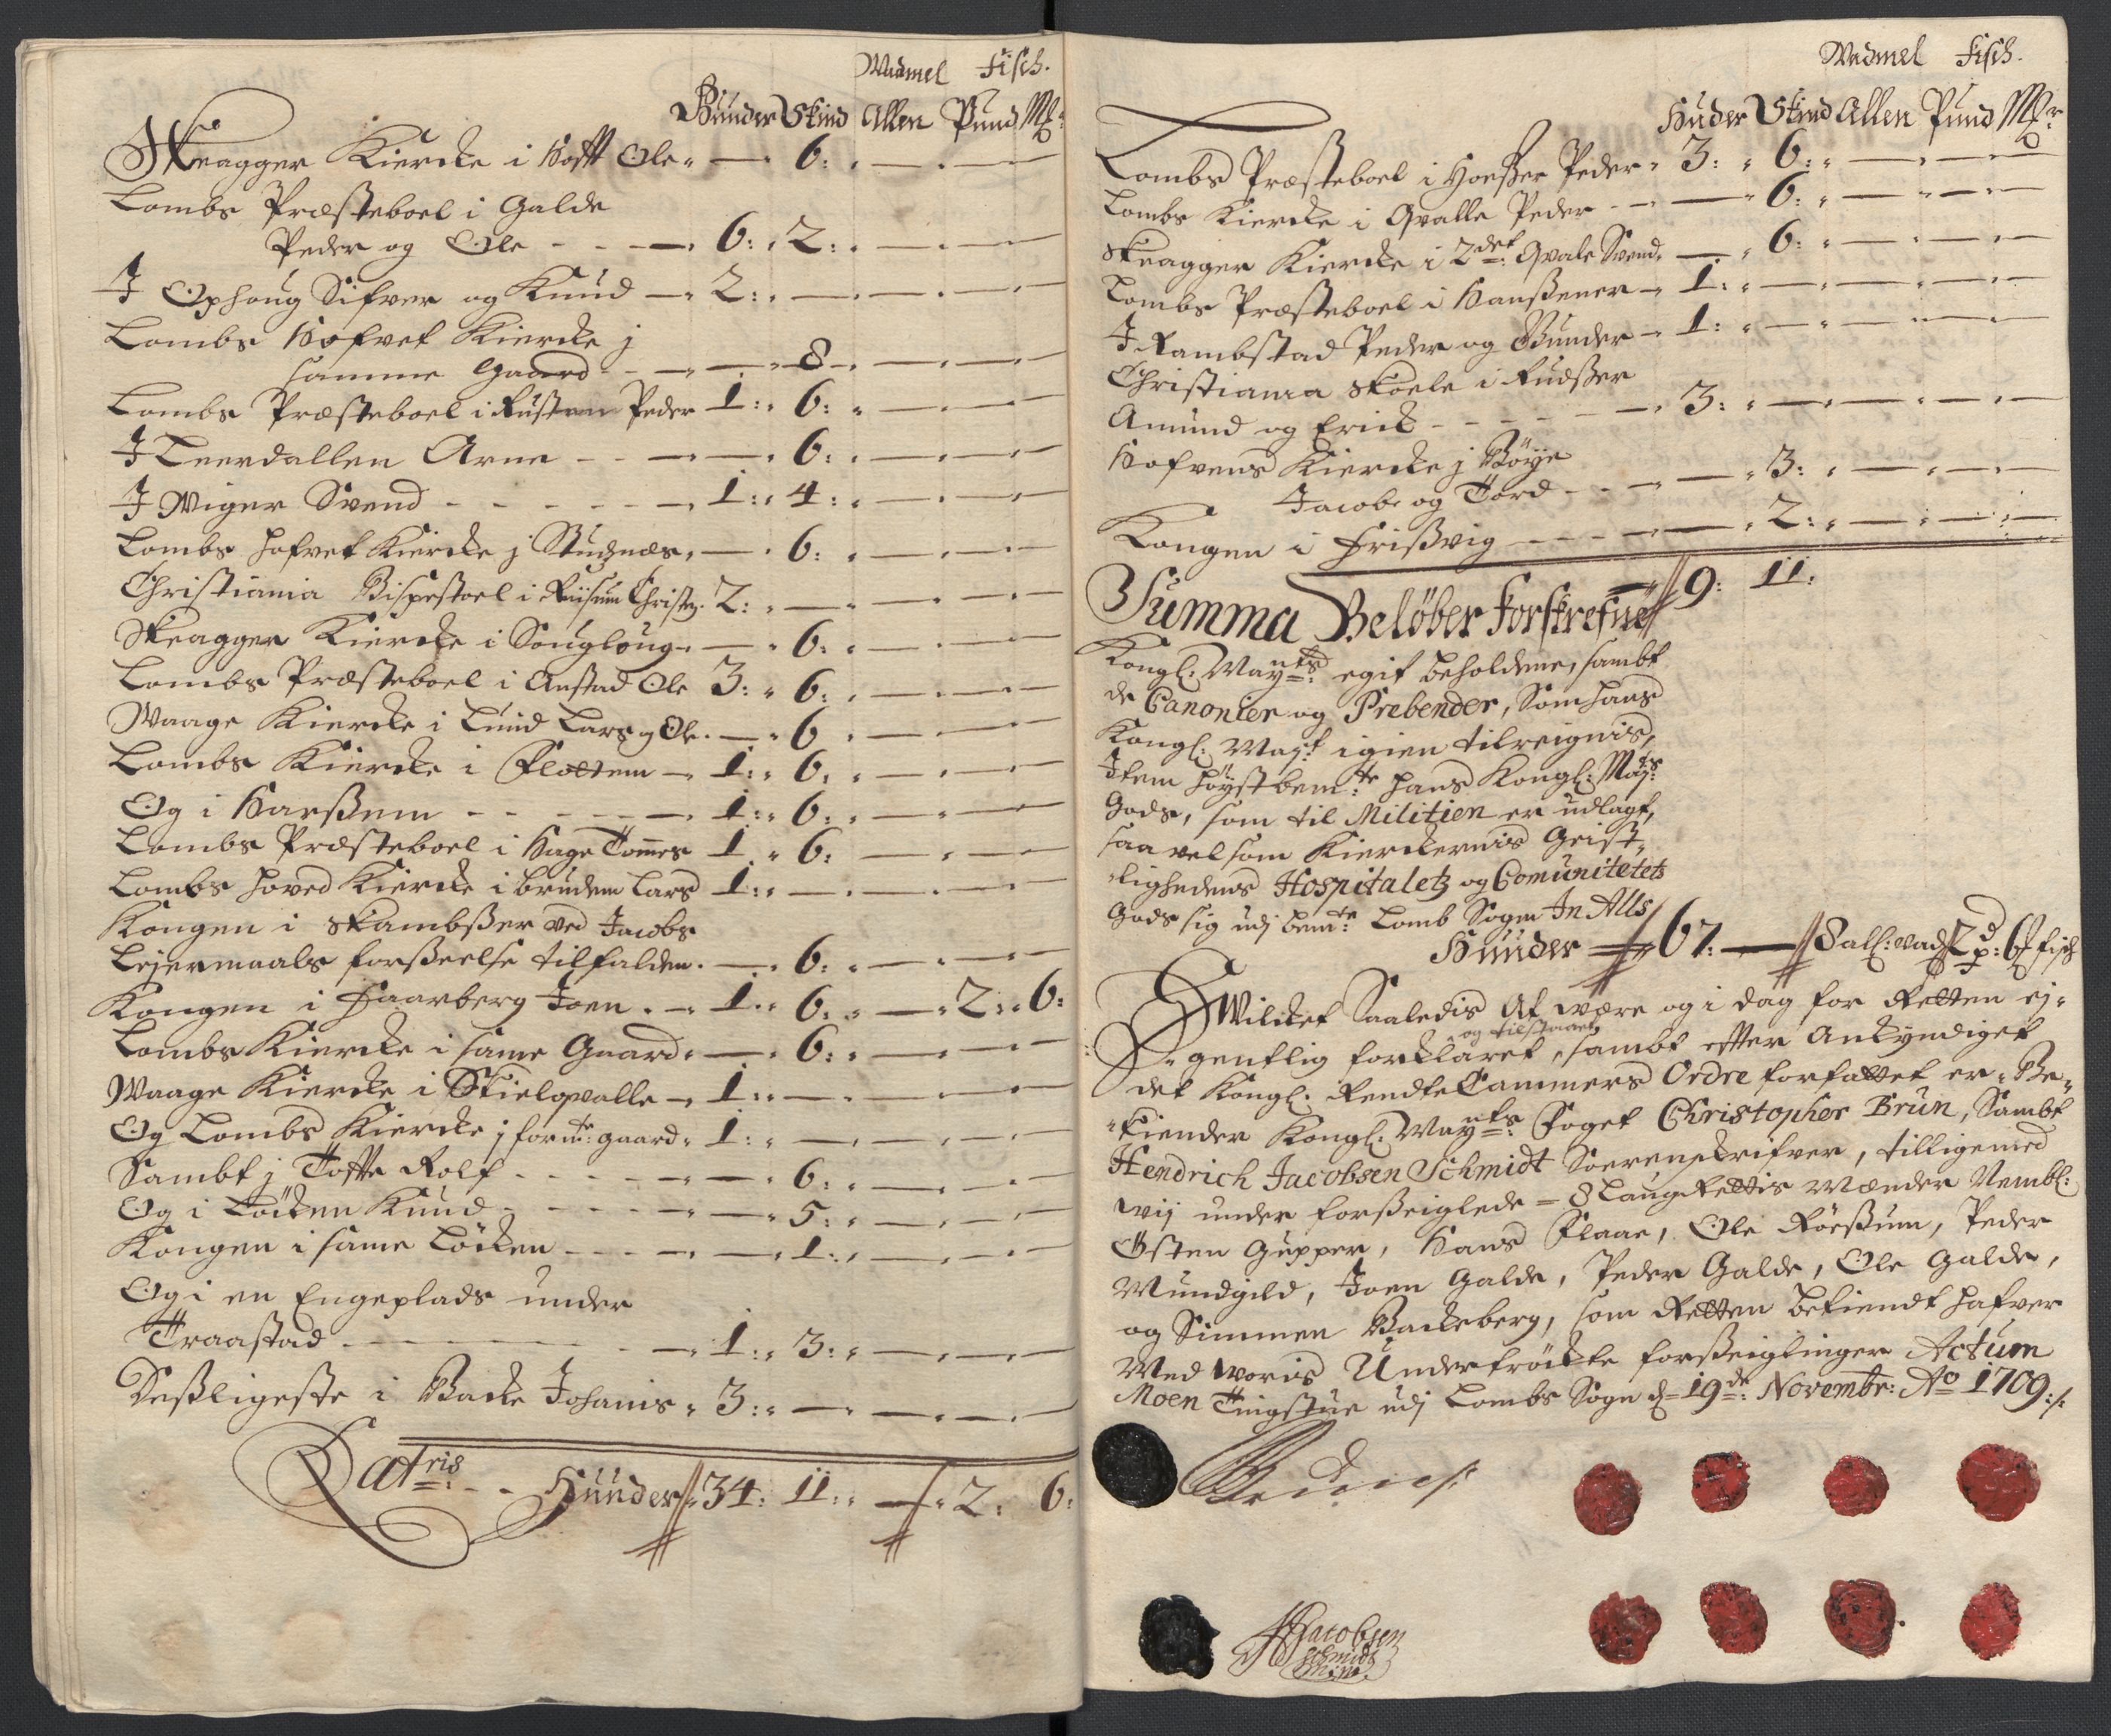 Wadmel Fisch.
Hunder Skind Allen Pund Mk
Skeagger Kiercke i Hofft Ole – 6: – – –
Lombs Præsteboel i Galde
Peder og Ole - - – 6: 2: – – –
I Ophoug Sifver og Knud – 2: – – – –
Lombs Hofvet Kiercke j
samme Gaard - – – 8 – – –
Lombs Præsteboel i Rusten Peder 1: 6: – – –
I Leerdallen Arne - - – – 6: – – –
I Wiger Svend - - - - – 1: 4: – – –
Lombs Hofvet Kiercke j Stuchnæs, – 6: – – –
Christiania Bispestoel i Riisum Christ. 2: – – – –
Skeagger Kiercke i Sougloug – 6: – – –
Lombs Præsteboel i Anstad Ole 3: 6: – – –
Waage Kiercke i Lund Lars og Ole. – 6 – – –
Lombs Kiercke i Flottem – 1: 6: – – –
Og i Harssem - - - - – 1: 6: – – –
Lombs Præsteboel i Hage Tommes 1 6: – – –
Lombs Hoved Kiercke i Brudem Lars 1: – – – –
Kongen i Skambsser ved Jacobs
Lejermaals forsseelse tilfalden. – 6: – – –
Kongen i Haarberg Joen. – 1: 6: – 2: 6:
Lombs Kiercke i same Gaard – 6: – – –
Waage Kiercke i Skielqvalle – 1: – – – –
Og Lombs Kiercke j formte: gaard 1: – – – –
Sambt j Toffte Rolf - - - – – 6: – – –
Og i Löcken Knud - - - – – 5: – – –
Kongen i same Löcken - - – – 1: – – –
Og i en Engeplads under
Traastad - – 1: 3: – – –
Desligeste i Backe Johanis 3: – – – –
Latris - - Hunder 34: 11: – 2: 6:
Wadmel Fisch.
Huder Skind Allen Pund Mkr
Lombs Præsteboel i Horsser Peder 3: 6: – – –
Lombs Kiercke i Qvalle Peder - – – 6: – – –
Skeagger Kiercke i 2det: Qvale Svend – 6: – – –
Lombs Præsteboel i Hanssener – 1: – – – –
I Rambstad Peder og Gunder – 1: – – – –
Christiania Skoele i Rudsser
Amund og Erick - - - - – 3: – – – –
Hofvens Kiercke j Böye
Jacob og Tord - - – – 3: – – –
Kongen i Frissvig - - - – – 2: – – –
Summa Beløber forskrefne 9: 11:
Kongl: Maytts: egit beholdene, sambt
de Canonier og Prebender, Som hans
Kongl: Mayt igien tilreignis,
Item høystbemte: hans Kongl: Mayts:
Gods, som til Militien er udlagt,
saa vel som Kierckernis Geist-
lighedens Hospitaletz og Comunitetetz
Gods sig udj bemte: Lomb Sogn In Alls
Hunder 67: – 8 all: wad 2 pd: 6 fisch
Hvilcket Saaledis At være og i dag for Retten ej-
og tilstaaet
gentlig forklaret, sambt effter Ankyndiget
det Kongl: Rendte Cammers Ordre forfattet er, Be-
kiender Kongl: Maytts: Foget Christopher Brun, Sambt
Hendrich Jacobsen Schmidt Sorenskrifver, tilligemed
wij under forsseiglede 8 LaugRettis Mænder Nembl:
Østen Gupper, Hans Flaae, Ole Röessum, Peder
Mundgild, Joen Galde, Peder Galde, Ole Galde,
og Simmen Backeberg, som Retten bekiendt hafver
Med woris Undertröckte forsseiglinger Actum
Moen Tingstue udj Lombs Sogn d: 19de: Novembr: Ao 1709
HJacobsen
Schmidt
mpp.